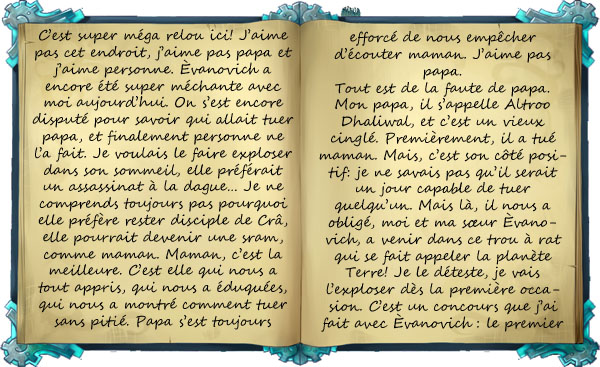 C'est super méga relou ici! J'aime
pas cet endroit, j'aime pas papa et
j'aime personne. Èvanovich a
encore été super méchante avec
moi aujourd'hui. On s'est encore
disputé pour savoir qui allait tuer
papa, et finalement personne ne
l'a fait. Je voulais le faire exploser
dans son sommeil, elle préférait
un assassinat à la dague... Je ne
comprends toujours pas pourquoi
elle préfère rester disciple de Crâ,
elle pourrait devenir une sram,
comme maman. Maman, c'est la
meilleure. C'est elle qui nous a
tout appris, qui nous a éduquées,
qui nous a montré comment tuer
sans pitié. Papa s'est toujours
efforcé de nous empêcher
d'écouter maman. J'aime pas
papa.
Tout est de la faute de papa.
Mon papa, il s'appelle Altroo
Dhaliwal, et c'est un vieux
cinglé. Premièrement, il a tué
maman. Mais, c'est son côté posi-
tif: je ne savais pas qu'il serait
un jour capable de tuer
quelqu'un. Mais là, il nous a
obligé, moi et ma sœur Èvano-
vich, a venir dans ce trou à rat
qui se fait appeler la planète
Terre! Je le déteste, je vais
l'exploser dès la première occa-
sion. C'est un concours que j'ai
fait avec Èvanovich : le premier